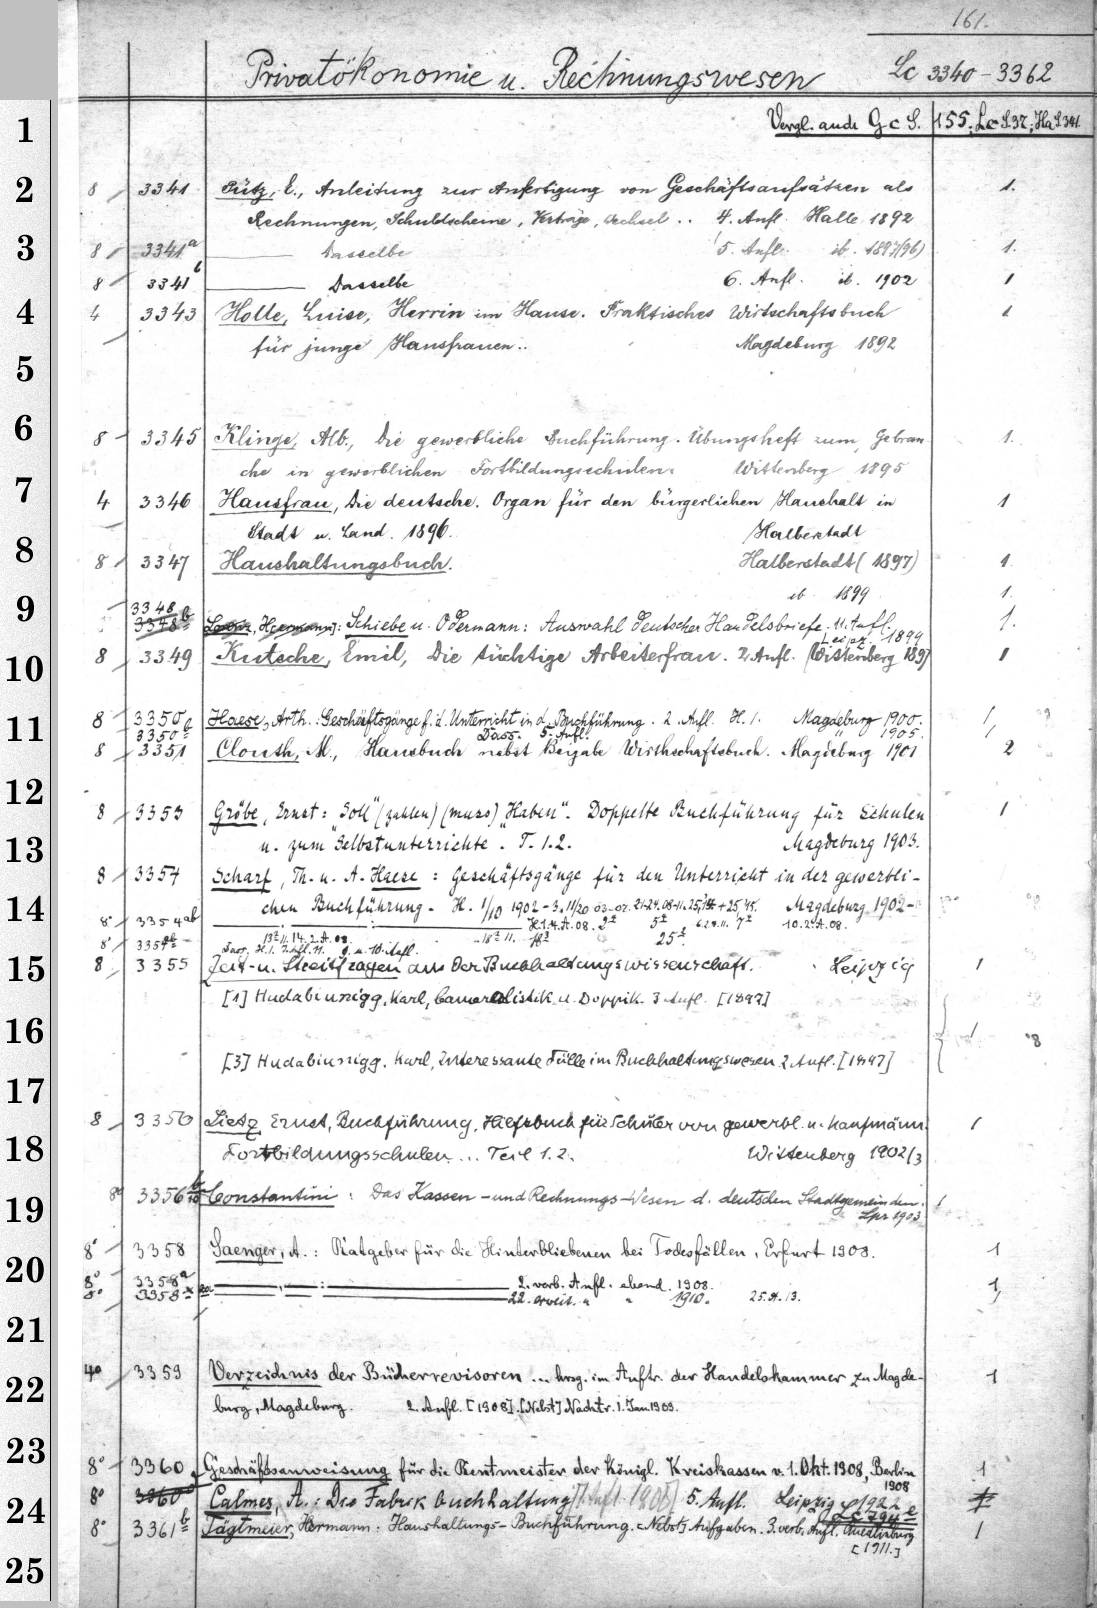 161.
Privatökonomie u. Rechnungswesen Lc 3340-3362
1 Vergl. auch G c S. 155. Lc S.37; Ha S 341.
2 8 3341 Pütz, E., Anleitung zur Anfertigung von Geschäftsaufsätzen als 1.
Rechnungen, Schuldscheine, Verträge, Wechsel .. 4. Aufl. Halle 1892
3 8 3341a Dasselbe 5. Aufl. ib. 1897(96) 1.
8 3341b Dasselbe 6. Aufl. ib. 1902 1
4 4 3343 Holle, Luise, Herrin im Hause. Praktisches Wirtschaftsbuch 1
für junge Hausfrauen.. Magdeburg 1892
5
6 8 3345 Klinge, Alb., Die gewerbliche Buchführung. Übungsheft zum Gebrau- 1.
che in gewerblichen Fortbildungsschulen. Wittenberg 1895
7 4 3346 Hausfrau, Die deutsche. Organ für den bürgerlichen Haushalt in 1
Stadt u. Land. 1896. Halberstadt
8 8 3347 Haushaltungsbuch. Halberstadt (1897) 1.
ib 1899 1.
9 3348
3348b Lorenz, Hermann: Schiebe u. Odermann: Auswahl deutscher Handelsbriefe. 11. Aufl. 1.
Leipz. 1899
10 8 3349 Kutsche, Emil, Die tüchtige Arbeiterfrau. 2. Aufl. (Wittenberg 189) 1
11 8° 3350 Haese, Arth.: Geschäftsgänge f. d. Unterricht in d. Buchführung. 2. Aufl. H. 1. Magdeburg 1900. 1
3350a Dass. 5. Aufl. " 1905.
8 3351 Clouth, M., Hausbuch nebst Beigabe Wirthschaftsbuch. Magdeburg 1901 2
12 8 3353 Gröbe, Ernst: "Soll" (zahlen) (muss) "Haben". Doppelte Buchführung für Schulen 1
13 u. zum Selbstunterrichte. T. 1.2. Magdeburg 1903.
8 3354 Scharf, Th. u. A. Haese: Geschäftsgänge für den Unterricht in der gewerbli-
14 chen Buchführung - H. 1/10 1902-3. Magdeburg 1902-
8° 3354ab H.1.4.A.08. 10.2.A.08.
8°
15 8 3355 Zeit- u. Streitfragen aus der Buchhaltungswissenschaft. Leipzig 1
[1] Hudabiunigg, Karl, Cameralistik u. Doppik. 3 Aufl. [1897]
16 1
[3] Hudabiunigg, Karl, Interessante Fälle im Buchhaltungswesen 2 Aufl. [1897]
17
8 3356 Lietz Ernst, Buchführung, Hilfsbuch für Schüler von gewerbl. u. kaufmänn. 1
18 Fortbildungsschulen... Teil 1.2. Wittenberg 1902/3
19 8° 3356 Constantini: Das Kassen- und Rechnungs-Wesen d. deutschen Stadtgemeinden. 1
Lpz 1903
20 8° 3358 Saenger, A.: Ratgeber für die Hinterbliebenen bei Todesfällen, Erfurt 1908. 1
8° 3358a 2. verb. Aufl. ebend. 1908. 1
8° 3358 22. erweit. " " 1910. 25.4.13.
21
22 4° 3359 Verzeichnis der Bücherrevisoren ... hrsg. im Auftr. der Handelskammer zu Magde- 1
burg, Magdeburg. 2. Aufl. [1908]. [Nebst] Nachtr. 1. Jan 1909.
23
8° 3360 Geschäftsanweisung für die Rentmeister der Königl. Kreiskassen v. 1. Okt. 1908, Berlin 1
1908
24 8° 3360a Calmes, A.: Die Fabrikbuchhaltung [1. Aufl. 1908] 5. Aufl. Leipzig 1922 1
Lc 794e
8° 3361b Tägtmeier, Hermann: Haushaltungs-Buchführung. [Nebst] Aufgaben. 3. verb. Aufl. Quedlinburg 1
[1911.]
25